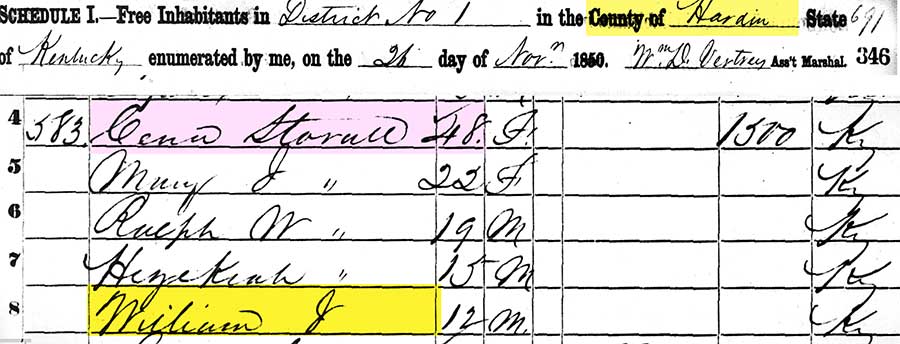 SCHEDULE I.—Free Inhabitants in District No 1 in the County of Hardin State 691
of Kentucky enumerated by me, on the 26 day of Novr 1850. Wm D. Vertrees Ass't Marshal. 346
4 583 Cena Stovall 48 F. 1500 Ky
5 Mary J " 22 F Ky
6 Ralph W " 19 M Ky
7 Hezekiah " 15 M Ky
8 William J 12 M. Ky